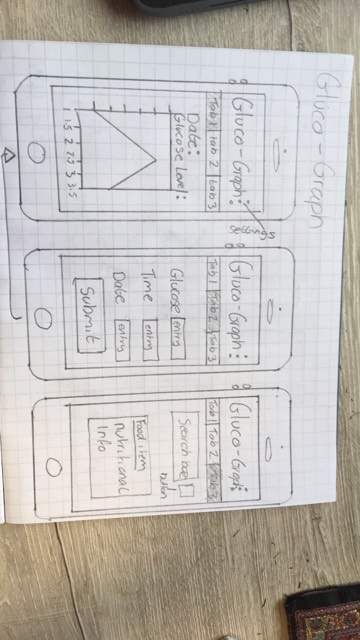 Gluco-Graph
Gluco-Graph:
settings
Tab 1 Tab 2 Tab 3
Date:
Glucose Level:
1 1.5 2 2.5 3 3.5
Gluco-Graph:
Tab 1 Tab 2 Tab 3
Glucose entry
Time entry
Date entry
Submit
Gluco-Graph:
Tab 1 Tab 2 Tab 3
Search bar
button
Food item
nutritional
Info